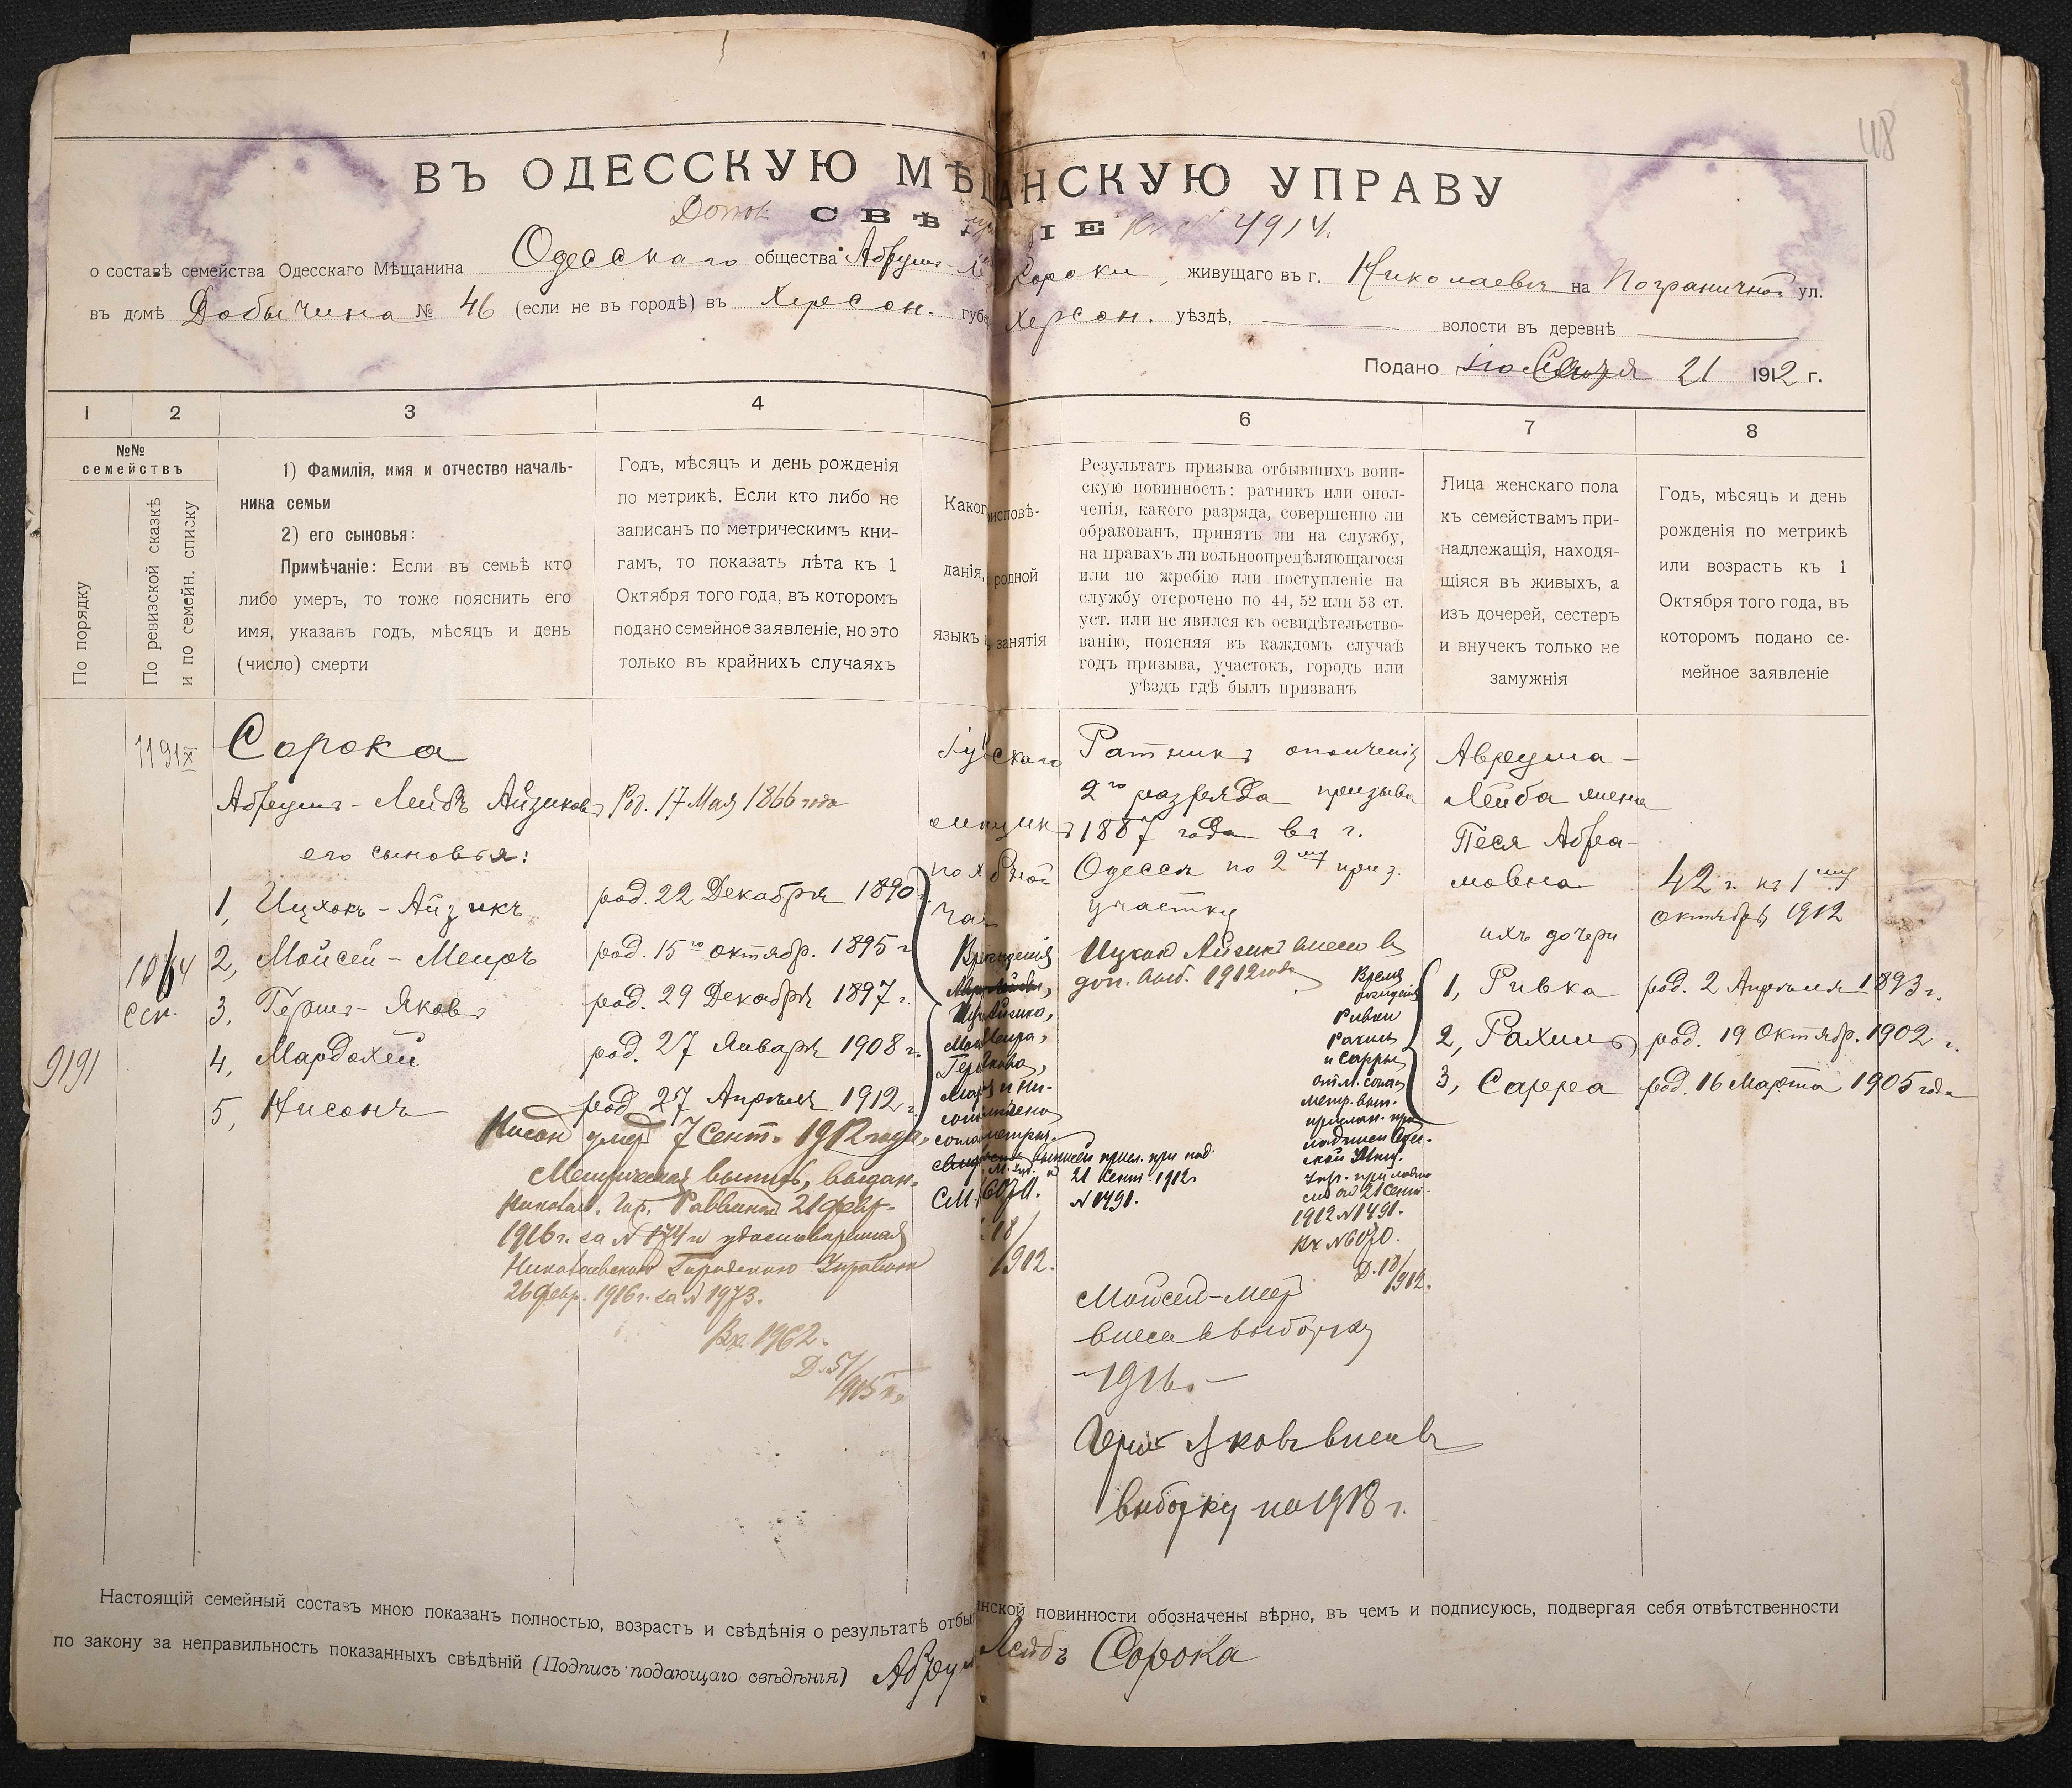 48
ВЪ ОДЕССКУЮ МѢЩАНСКУЮ УПРАВУ
СВѢ ІЕ 4914.
о составѣ семейства Одесскаго Мѣщанина Одесскаго общества Абрума Сороки, живущаго въ г. Николаевѣ на Пограничной ул.
въ домѣ Добычина № 46 (если не въ городѣ) въ Херсон. губ Херсон. уѣздѣ, волости въ деревнѣ
Подано 21 1912 г.
1 2 3 4 6 7 8
№№ семействъ
По порядку
По ревизской сказкѣ и по семейн. списку
1) Фамилія, имя и отчество началь-
ника семьи
2) его сыновья:
Примѣчаніе: Если въ семьѣ кто
либо умеръ, то тоже пояснить его
имя, указавъ годъ, мѣсяцъ и день
(число) смерти
Годъ, мѣсяцъ и день рожденія
по метрикѣ. Если кто либо не
записанъ по метрическимъ кни-
гамъ, то показать лѣта къ 1
Октября того года, въ которомъ
подано семейное заявленіе, но это
только въ крайнихъ случаяхъ
Каког исповѣ-
данія, родной
языкъ занятія
Результатъ призыва отбывшихъ воин-
скую повинность: ратникъ или опол-
ченія, какого разряда, совершенно ли
обракованъ, принятъ ли на службу,
на правахъ ли вольноопредѣляющагося
или по жребію или поступленіе на
службу отсрочено по 44, 52 или 53 ст.
уст. или не явился къ освидѣтельство-
ванію, поясняя въ каждомъ случаѣ
годъ призыва, участокъ, городъ или
уѣздъ гдѣ былъ призванъ
Лица женскаго пола
къ семействамъ при-
надлежащія, находя-
щіяся въ живыхъ, а
изъ дочерей, сестеръ
и внучекъ только не
замужнія
Годъ, мѣсяцъ и день
рожденія по метрикѣ
или возрастъ къ 1
Октября того года, въ
которомъ подано се-
мейное заявленіе
1191
Сорока
Абрумъ-Лейбъ Айзиковъ Род. 17 Мая 1866 года
его сыновья:
1, Ицхокъ-Айзикъ род. 22 Декабря 1890
2, Мойсей-Меиръ род. 15го октябр. 1895 г
3, Гершъ-Яковъ род. 29 Декабря 1897 г.
4, Мардохей род. 27 Января 1908 г.
5, Нисонъ род 27 Апрѣля 1912 г.
9191
Нисон умер 7 Сент. 1912 года.
Метрическая выпись, выдан.
Николаев. Гор. Раввином 21 февр.
1916 г. за № 174 и удостовѣренная
Николаевской Городскою Управою
26 февр. 1916 г. за № 1973.
Вх. 1962.
Д. 51/
1915 г.
Ратникъ ополченія
2го разряда призыва
1887 года въ г.
Одессѣ по 2му приз.
участку
Ицхок Айзикъ внесен в
доп. 1912 года
21 Сент. 1912
№ 1491.
СМ. 6070.
18/
1912.
Время
рожденія
Ривки
Рахили
и Сарры
1912 № 1491.
Вх № 6070.
Д. 18/
1912.
Мойсей-Меер
внесен в выборку
1916.
Герш Яковъ внесен въ
выборку на 1918 г.
Авреума-
Лейба жена
Песя Абра-
мовна
42 г. къ 1му
октября 1912
ихъ дочери
1, Ривка род. 2 Апрѣля 1893 г.
2, Рахиль род. 19 Октябр. 1902 г.
3, Сарра род. 16 Марта 1905 года
Настоящій семейный составъ мною показанъ полностью, возрастъ и свѣдѣнія о результатѣ отбы инской повинности обозначены вѣрно, въ чемъ и подписуюсь, подвергая себя отвѣтственности
по закону за неправильность показанныхъ свѣдѣній (Подпись подающаго свѣдѣнія) Абрум Лейбъ Сорока